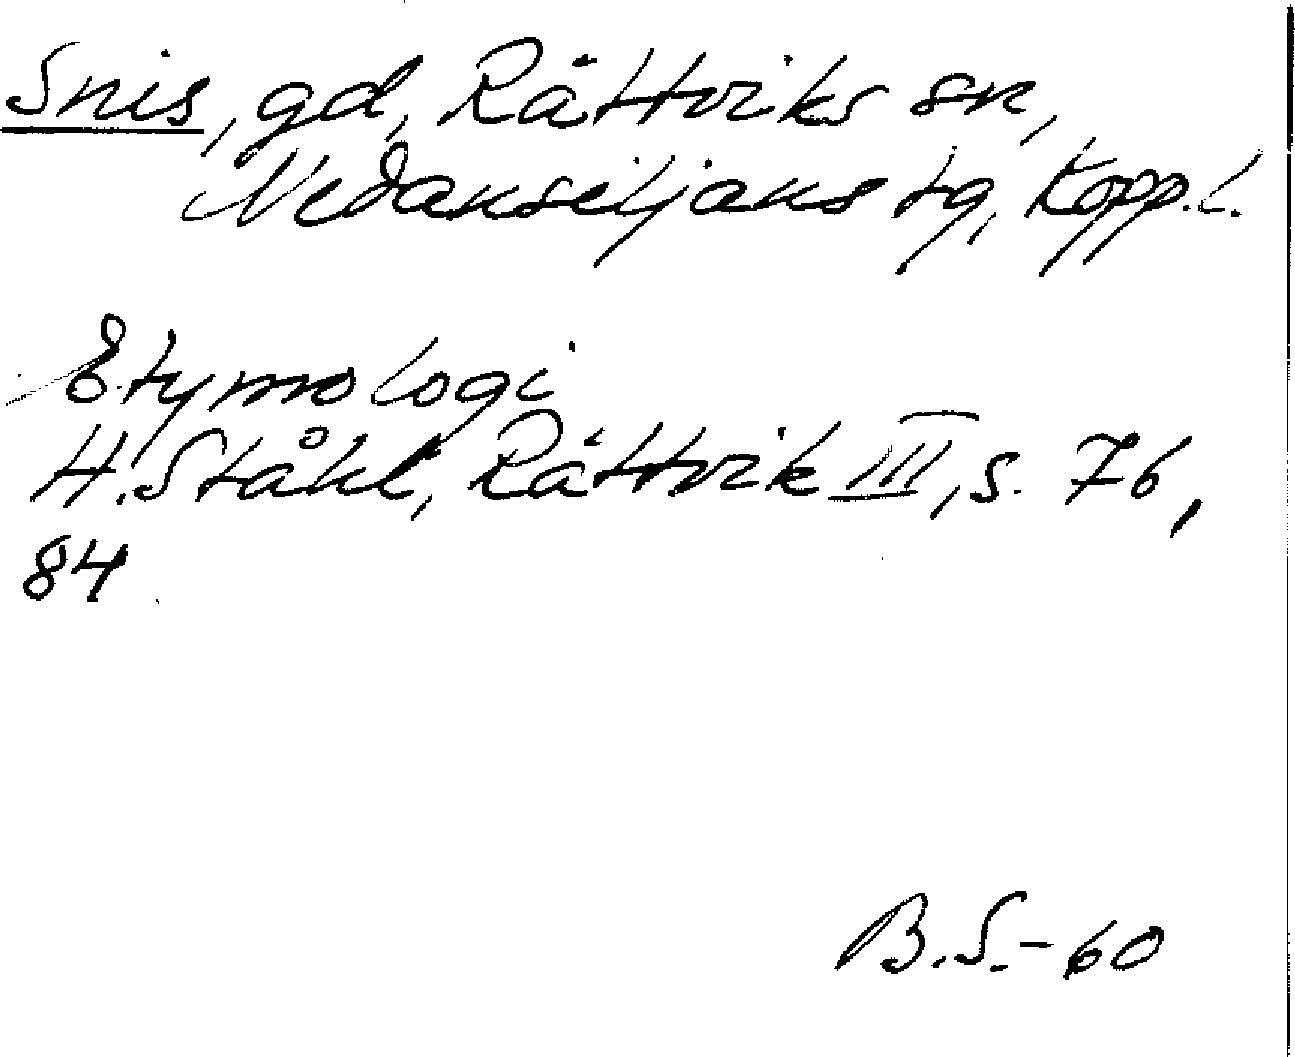 Snis, gd, Rättviks sn,
Nedansiljans tg, Kopp.l.
Etymologi
H. Ståhl, Rättvik III, s. 76,
84
B.S.-60